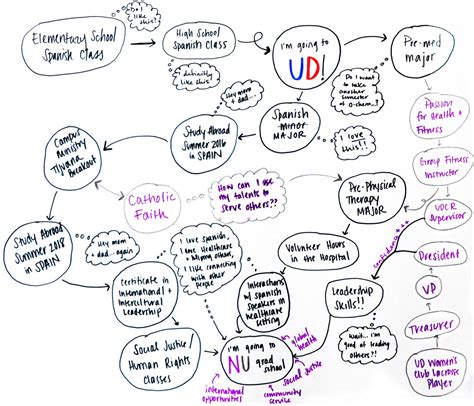 Elementary School
Spanish Class
Do I
like this?
High School
Spanish Class
definitely
like this!
i'm going to
UD!
Pre-med
major
Do I want to
take
another
semester of
o-chem...?
Passion
for Health +
Fitness
Group Fitness
Instructor
UDCR
Supervisor
Hey mom
+ dad...
Study Abroad
Summer 2016
in SPAIN
Spanish
minor
MAJOR
I love
this!!
Campus
Ministry
Tijuana
Breakout
Catholic
Faith
How can I use
my talents to
serve others??
Pre-Physical
Therapy
MAJOR
Study Abroad
Summer 2018
in SPAIN
Hey mom
+ dad...again
I love Spanish,
I love Healthcare
+ helping others,
I like connecting
with other
people
Volunteer Hours
in the Hospital
confidence +++
President
VP
Treasurer
UD Women's
Club Lacrosse
Player
Certificate in
International +
Intercultural
Leadership
Interactions
w/ Spanish
speakers in
healthcare
setting
Leadership
Skills!!
Wait... i'm
good at leading
others?!
Social Justice /
Human Rights
Classes
i'm going to
NU grad
school
global
health
social justice
community
service
international
opportunities